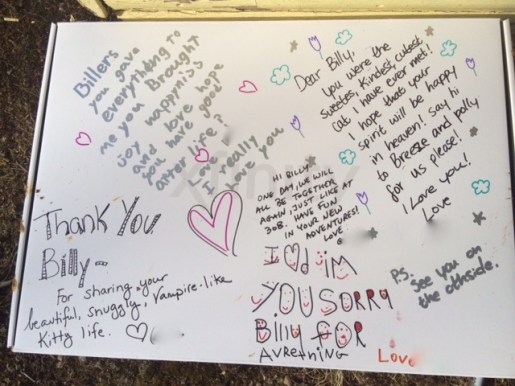 Billers
you gave
everything to
me you Brought
Joy happyniss
and love hope
you have good
after life?
Love
I really
Love you
Dear Billy,
You were the
sweetes, Kindest, cutest
cat I have ever met!
I hope that your
spirit will be happy
in heaven! say hi
to Breeze and polly
for us please!
I Love you!
Love
HI BILLY
ONE DAY, WE WILL
ALL BE TOGETHER
AGAIN, JUST LIKE AT
308. HAVE FUN
IN YOUR NEW
ADVENTURES!
LOVE
Thank You
Billy-
For sharing your
beautiful, snuggly, Vampire-like
Kitty life.
I im
YOU SORRY
Billy FOR
AVRETHING
Love
P.S.
See you on
the othside.